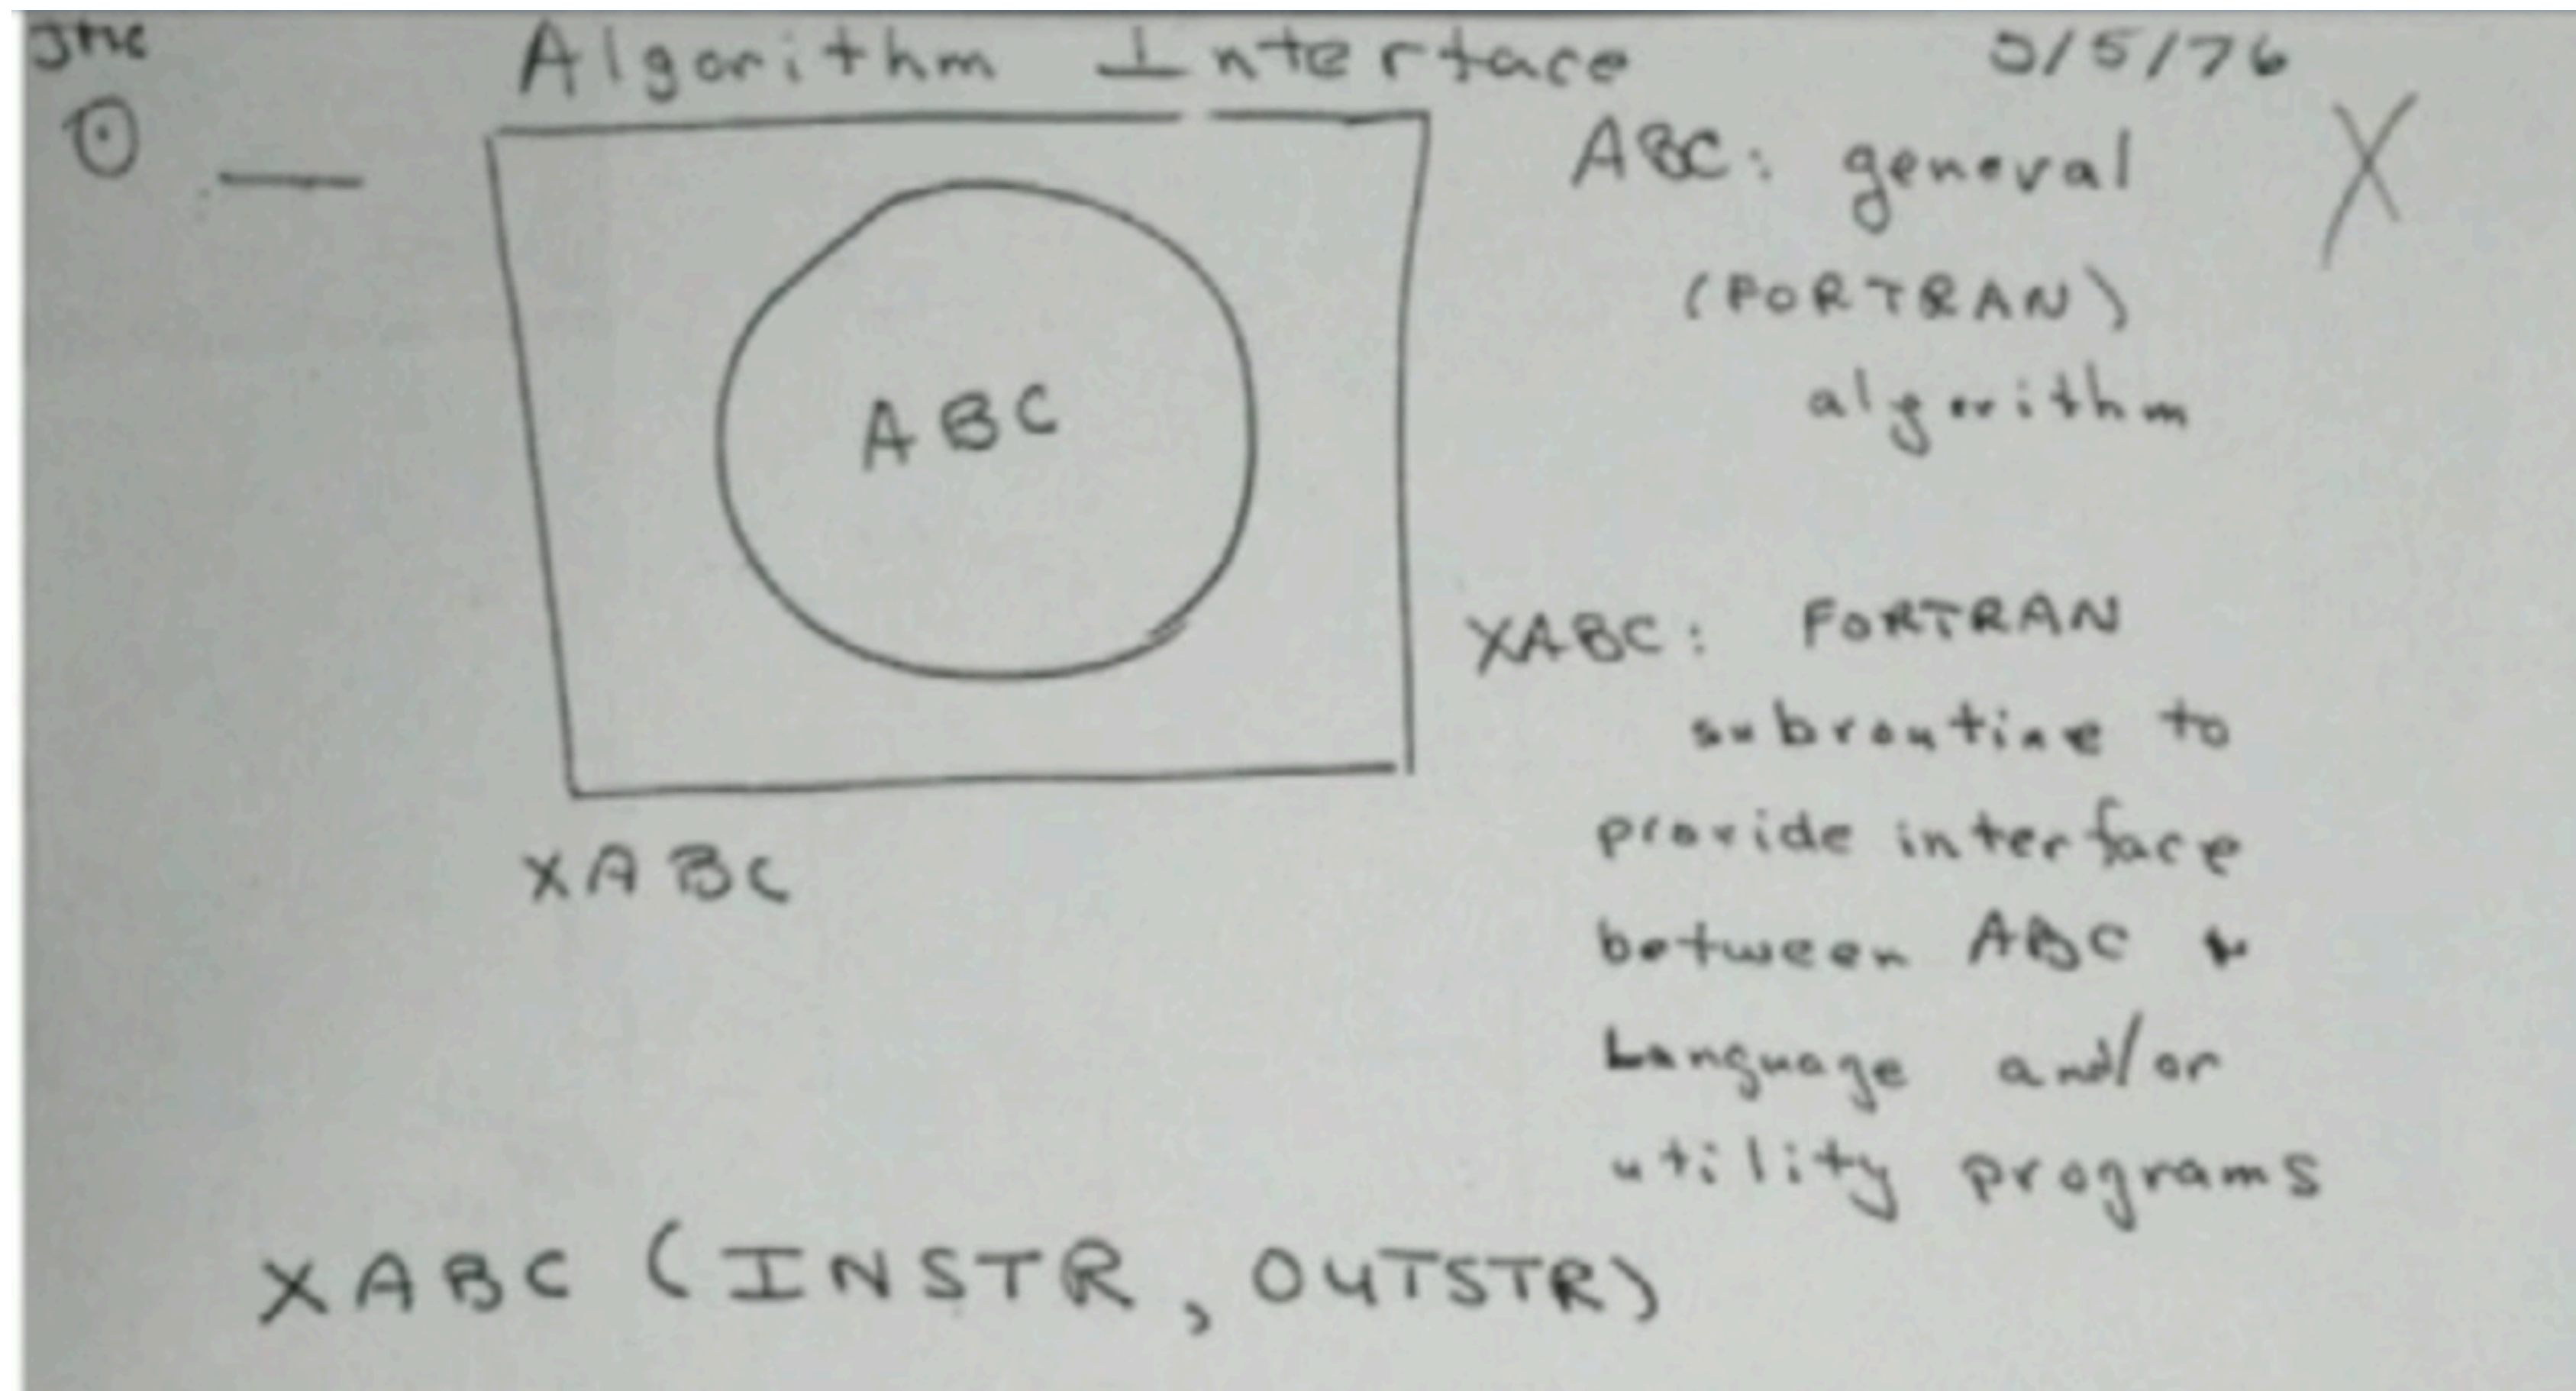 Algorithm Interface 5/5/76
ABC: general
(FORTRAN)
algorithm
ABC
XABC: FORTRAN
subroutine to
provide interface
between ABC &
Language and/or
utility programs
XABC
XABC (INSTR, OUTSTR)